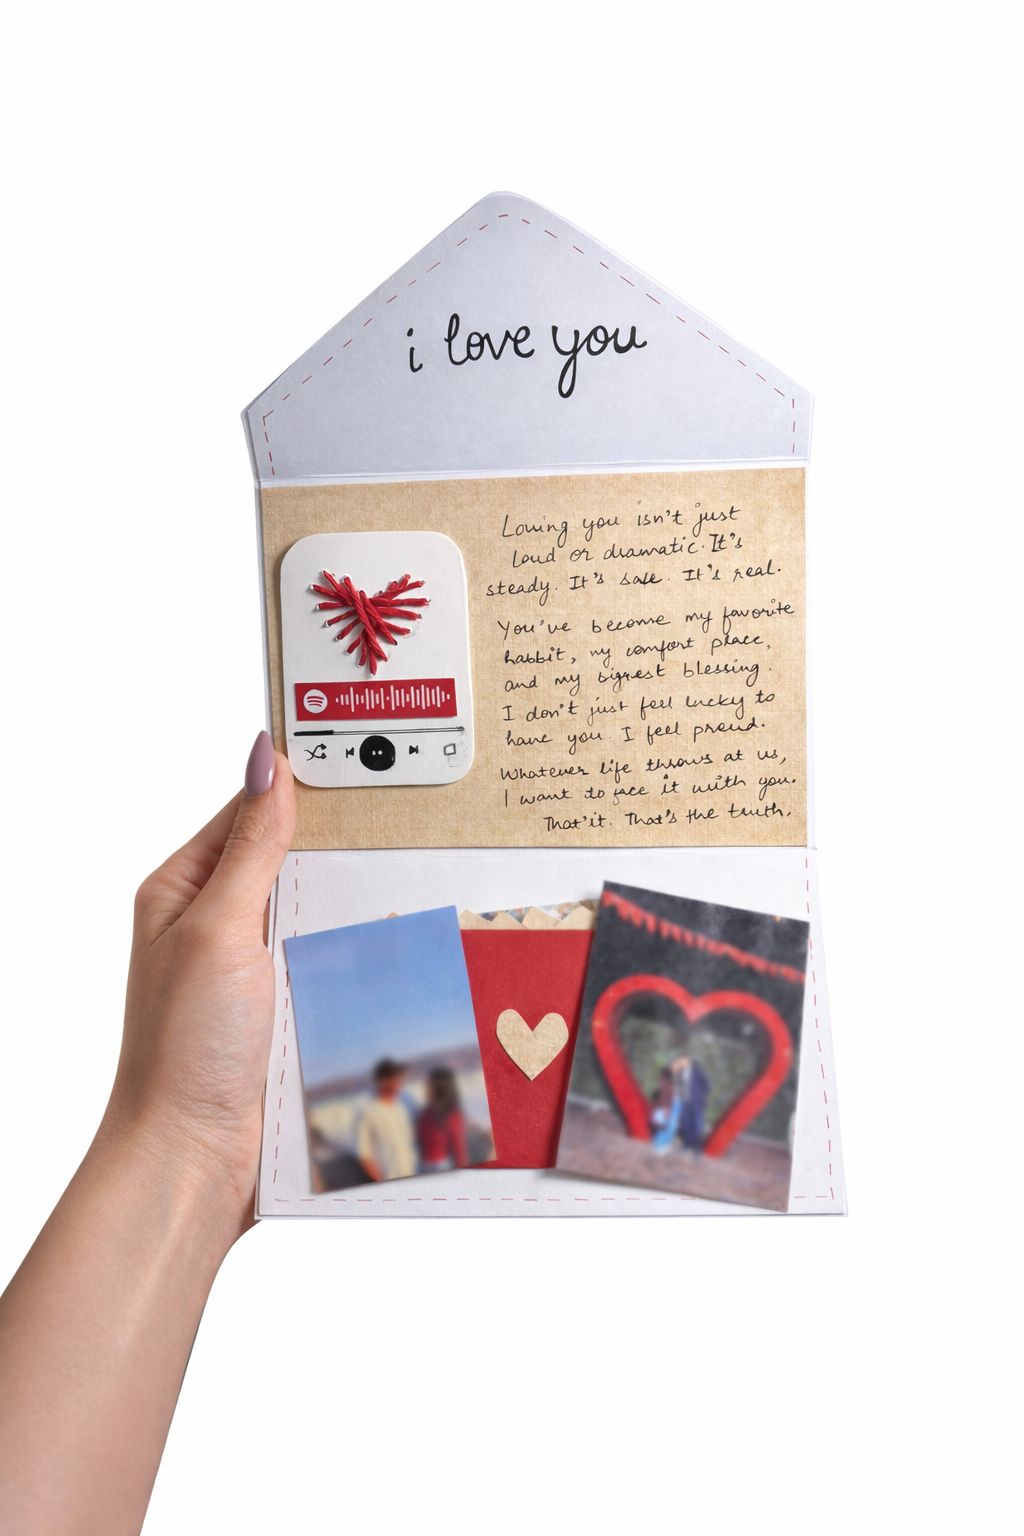 i love you
Loving you isn't just
loud or dramatic. It's
steady. It's safe. It's real.
You've become my favorite
habbit, my comfort place,
and my biggest blessing.
I don't just feel lucky to
have you. I feel proud.
Whatever life throws at us,
I want to face it with you.
That'it. That's the truth.